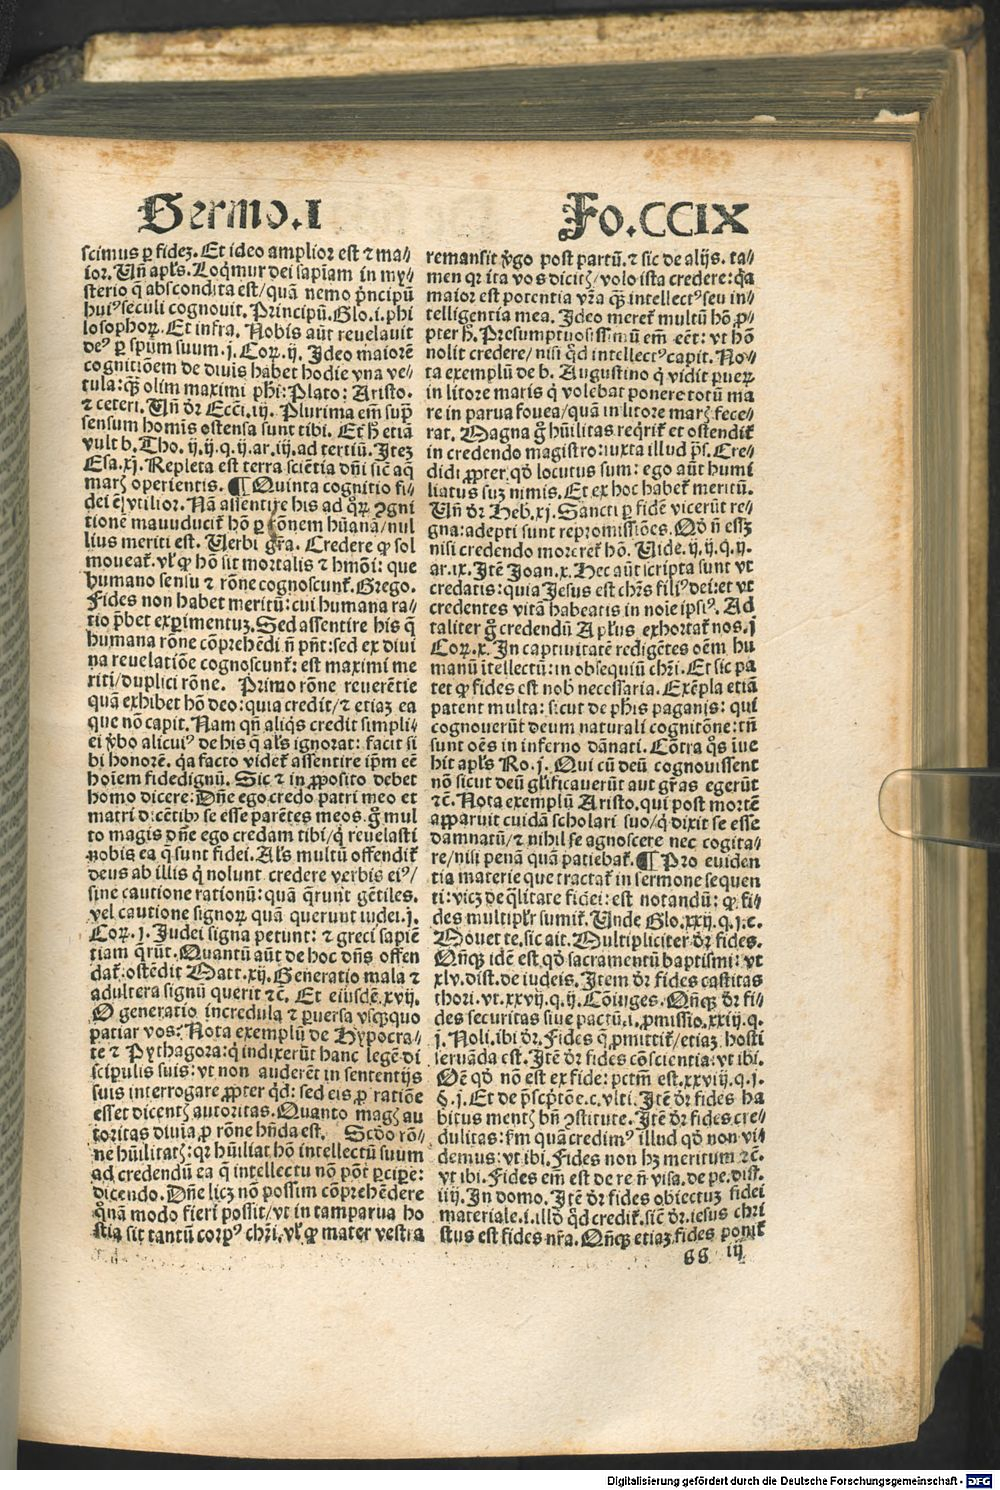 Sermo.I
Fo.CCIX
scimus ꝑ fidez. Et ideo amplior est ⁊ ma⸗
ior. Vñ apl's. Loq̃mur dei sapiam in my⸗
sterio q̃ abscondita est/quã nemo p̃ncipũ
huiꝰ seculi cognouit. Principũ. Glo. i. phi
losophoꝝ. Et infra. Nobis aũt reuelauit
deꝰ ꝑ spũm suum. j. Coꝝ. ij. Ideo maiorẽ
cognitiõem de diuis habet hodie vna ve⸗
tula: q̃ olim maximi phi: Plato: Aristo.
⁊ ceteri. Vñ dr̃ Ecci. iij. Plurima em̃ sup̃
sensum homis ostensa sunt tibi. Et h̃ etiã
vult b. Tho. ij. ij. q. ij. ar. iij. ad tertiũ. Itez
Esa. xj. Repleta est terra sciẽtia dñi sic̃ aq̃
marꝭ operientis. ¶ Quinta cognitio fi⸗
dei ẽ vtilior. Nã assentire his ad q̃ꝝ ꝯgni
tionẽ manuducit̃ hõ ꝑ rõnem hũanã/nul
lius meriti est. Verbi gr̃a. Credere ꝙ sol
moueat̃. vl' ꝙ hõ sit mortalis ⁊ hmõi: que
humano sensu ⁊ rõne cognoscunt̃. Grego.
Fides non habet meritũ: cui humana ra⸗
tio p̃bet exꝑimentuz. Sed assentire his q̃
humana rõne cõprehẽdi ñ pñt: sed ex diui
na reuelatiõe cognoscunt̃: est maximi me
riti/duplici rõne. Primo rõne reuerẽtie
quã exhibet hõ deo: quia credit/⁊ etiaz ea
que nõ capit. Nam qñ aliq̃s credit simpli⸗
ci v̓bo alicuiꝰ de his q̃ al's ignorat: facit si
bi honorẽ. q̃a facto videt̃ assentire ip̃m eẽ
hoiem fidedignũ. Sic ⁊ in ꝓposito debet
homo dicere: Dñe ego credo patri meo et
matri dicẽtibꝰ se esse parẽtes meos. g̃ mul
to magis dñe ego credam tibi/q̃ reuelasti
nobis ea q̃ sunt fidei. Al's multũ offendit̃
deus ab illis q̃ nolunt credere verbis eiꝰ/
sine cautione rationũ: quã q̃runt gẽtiles.
vel cautione signoꝝ quã querunt iudei. j.
Coꝝ. j. Judei signa petunt: ⁊ greci sapiẽ
tiam q̃rũt. Quantũ aũt de hoc dñs offen
dat̃: ostẽdit Matt. xij. Generatio mala ⁊
adultera signũ querit ⁊c̃. Et eiusdẽ. xvij.
O generatio incredula ⁊ ꝑuersa vsq̃quo
patiar vos? Nota exemplũ de Hypocra⸗
te ⁊ Pythagora: q̃ indixerũt hanc legẽ di
scipulis suis: vt non auderẽt in sententijs
suis interrogare ꝓpter q̃d: sed eis ꝓ ratiõe
esset dicentꝭ autoritas. Quanto magꝭ au
toritas diuia ꝓ rõne hñda est. Scdo rõ⸗
ne hũilitatꝭ: qr hũiliat hõ intellectũ suum
ad credendũ ea q̃ intellectu nõ põt ꝑcipe:
dicendo. Dñe licz nõ possim cõprehẽdere
q̃nã modo fieri possit/vt in tam parua ho
stia sit tantũ corpꝰ chr̃i. vl' ꝙ mater vestra
remansit v̓go post partũ. ⁊ sic de alijs. ta⸗
men qr ita vos dicitꝭ/volo ista credere: q̃a
maior est potentia vr̃a q̃ intellectꝰ seu in⸗
telligentia mea. Ideo meret̃ multũ hõ ꝓ⸗
pter h̃. Presumptuosissimũ em̃ eẽt: vt hõ
nolit credere/nisi q̃d intellectꝰ capit. No⸗
ta exemplũ de b. Augustino q̃ vidit pueꝝ
in litore maris q̃ volebat ponere totũ ma
re in parua fouea/quã in litore marꝭ fece⸗
rat. Magna g̃ hũilitas req̃rit̃ et ostendit̃
in credendo magistro: iuxta illud p̃s. Cre⸗
didi ꝓpter qd' locutus sum: ego aũt humi
liatus suz nimis. Et ex hoc habet̃ meritũ.
Vñ dr̃ Heb. xj. Sancti ꝑ fidẽ vicerũt re⸗
gna: adepti sunt repromissiões. Qd' ñ essz
nisi credendo moreret̃ hõ. Vide. ij. ij. q. ij.
ar. ix. Itẽ Joan. x. Hec aũt scripta sunt vt
credatis: quia Jesus est chr̃s filiꝰ dei: et vt
credentes vitã habeatis in noie ipsiꝰ. Ad
taliter g̃ credendũ Apl'us exhortat̃ nos. j
Coꝝ. x. In captiuitatẽ redigẽtes oẽm hu
manũ ĩtellectũ: in obsequiũ chr̃i. Et sic pa
tet ꝙ fides est nob̃ necessaria. Exẽpla etiã
patent multa: sicut de phis paganis: qui
cognouerũt deum naturali cognitõne: tñ
sunt oẽs in inferno dãnati. Cõtra q̃s ĩue
hit apl's Ro. j. Qui cũ deũ cognouissent
nõ sicut deũ gl'ificauerũt aut gr̃as egerũt
⁊c̃. Nota exemplũ Aristo. qui post mortẽ
apparuit cuidã scholari suo/q̃ dixit se esse
damnatũ/⁊ nihil se agnoscere nec cogita⸗
re/nisi penã quã patiebat̃. ¶ Pro euiden
tia materie que tractat̃ in sermone sequen
ti: vicz de q̃litate fidei: est notandũ: ꝙ fi⸗
des multipl'r sumit̃. Unde Glo. xxij. q. j. c.
Mouet te. sic ait. Multipliciter dr̃ fides.
Qñq̃ idẽ est qd' sacramentũ baptismi: vt
xlv. dist. de iudeis. Item dr̃ fides castitas
thori. vt. xxvij. q. ij. Cõiuges. Qñq̃ dr̃ fi⸗
des securitas siue pactũ. i. ꝓmissio. xxiij. q.
j. Noli. ibi dr̃. Fides q̃ ꝓmittit̃/etiaz hosti
seruãda est. Itẽ dr̃ fides cõscientia: vt ibi.
Oẽ qd' nõ est ex fide: pctm̃ est. xxviij. q. j.
§. j. Et de p̃scptõe. c. vlti. Itẽ dr̃ fides ha
bitus mentꝭ bñ ꝯstitute. Itẽ dr̃ fides cre⸗
dulitas: fm quã credimꝰ illud qd' non vi⸗
demus: vt ibi. Fides non hz meritum ⁊c̃.
vt ibi. Fides em̃ est de re ñ visa. de pe. dist.
iiij. In domo. Itẽ dr̃ fides obiectuz fidei
materiale. i. illd' q̃d credit̃. sic̃ dr̃. iesus chri
stus est fides nr̃a. Qñq̃ etiaz fides ponit̃
gg iij
Digitalisierung gefördert durch die Deutsche Forschungsgemeinschaft - DFG